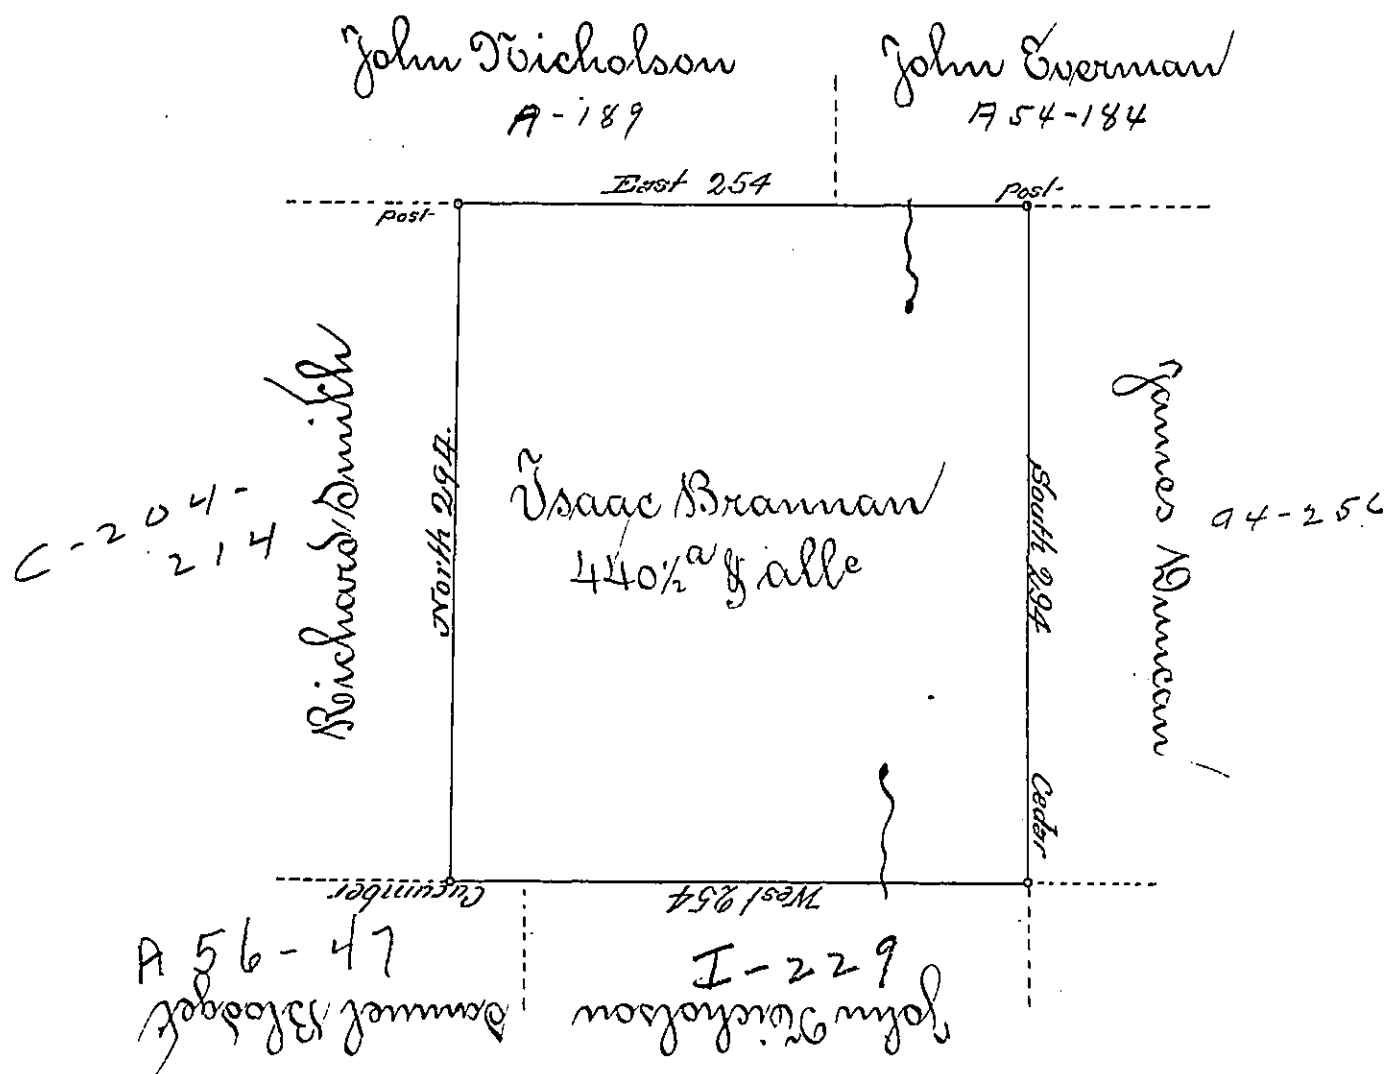 John Nicholson
A-189
John Everman
A 54-184
East 254
Post
Post
Richard Smith
C-204-
214
North 294.
Isaac Brannan
440½ a & allc
South 294
James Duncan
Cedar
Cucumber
West 254
A 56-47
Samuel Blodget
I-229
John Nicholson